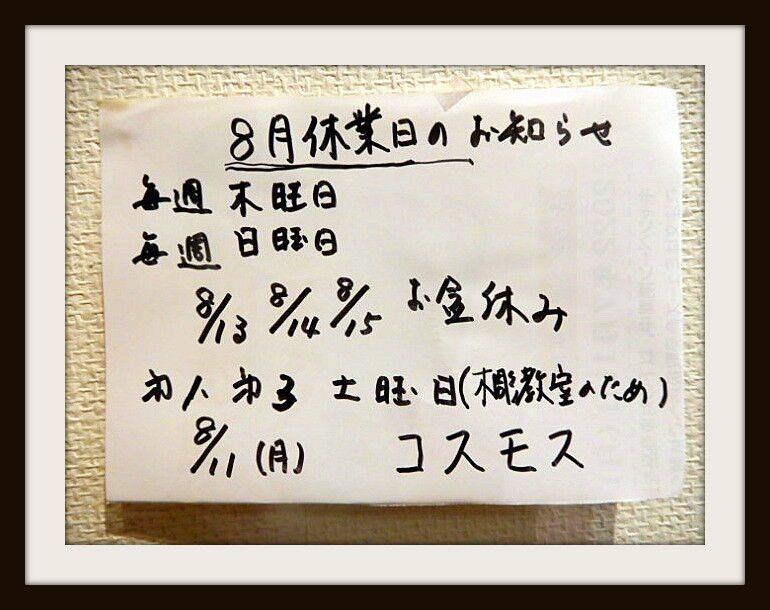 8月休業日のお知らせ
毎週 木旺日
毎週 日曜日
8/13 8/14 8/15 お盆休み
第1 第3 土旺日(彫教室のため)
8/11(月) コスモス